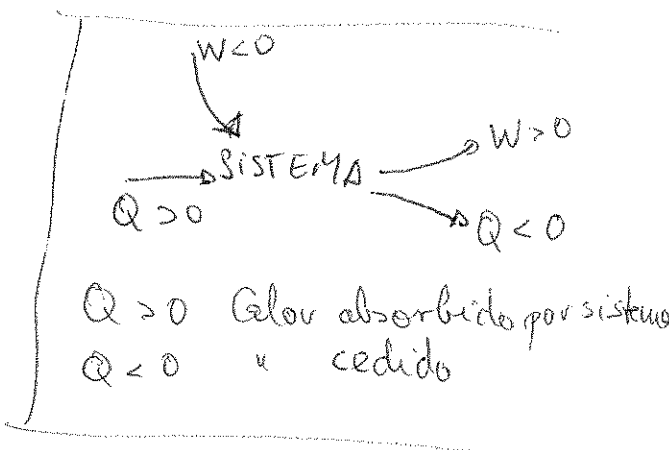 W<0
W>0
SISTEMA
Q>0
Q<0
Q>0 Calor absorbido por sistema
Q<0 " cedido